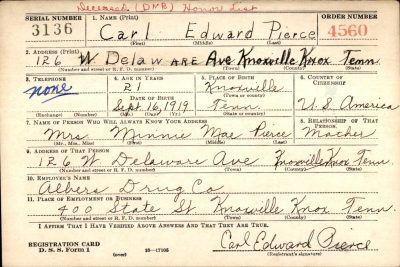 Deceased (DNB) Honor List
SERIAL NUMBER 1. NAME (Print) ORDER NUMBER
3136 Carl Edward Pierce 4560
(First) (Middle) (Last)
2. ADDRESS (Print)
126 W Delaware Ave Knoxville Knox Tenn.
(Number and street or R. F. D. number) (Town) (County) (State)
3. TELEPHONE 4. AGE IN YEARS 5. PLACE OF BIRTH 6. COUNTRY OF CITIZENSHIP
none 21 Knoxville
DATE OF BIRTH (Town or county)
Sept. 16, 1919 Tenn. U.S America
(Exchange) (Number) (Mo.) (Day) (Yr.) (State or country)
7. NAME OF PERSON WHO WILL ALWAYS KNOW YOUR ADDRESS 8. RELATIONSHIP OF THAT PERSON
Mrs. Minnie Mae Pierce Mother
(Mr., Mrs., Miss) (First) (Middle) (Last)
9. ADDRESS OF THAT PERSON
126 W. Delaware Ave Knoxville Knox Tenn.
(Number and street or R. F. D. number) (Town) (County) (State)
10. EMPLOYER'S NAME
Albers Drug Co
11. PLACE OF EMPLOYMENT OR BUSINESS
400 State St. Knoxville Knox Tenn.
(Number and street or R. F. D. number) (Town) (County) (State)
I AFFIRM THAT I HAVE VERIFIED ABOVE ANSWERS AND THAT THEY ARE TRUE.
REGISTRATION CARD
D. S. S. Form 1 (over) 16—17105 Carl Edward Pierce
(Registrant's signature)